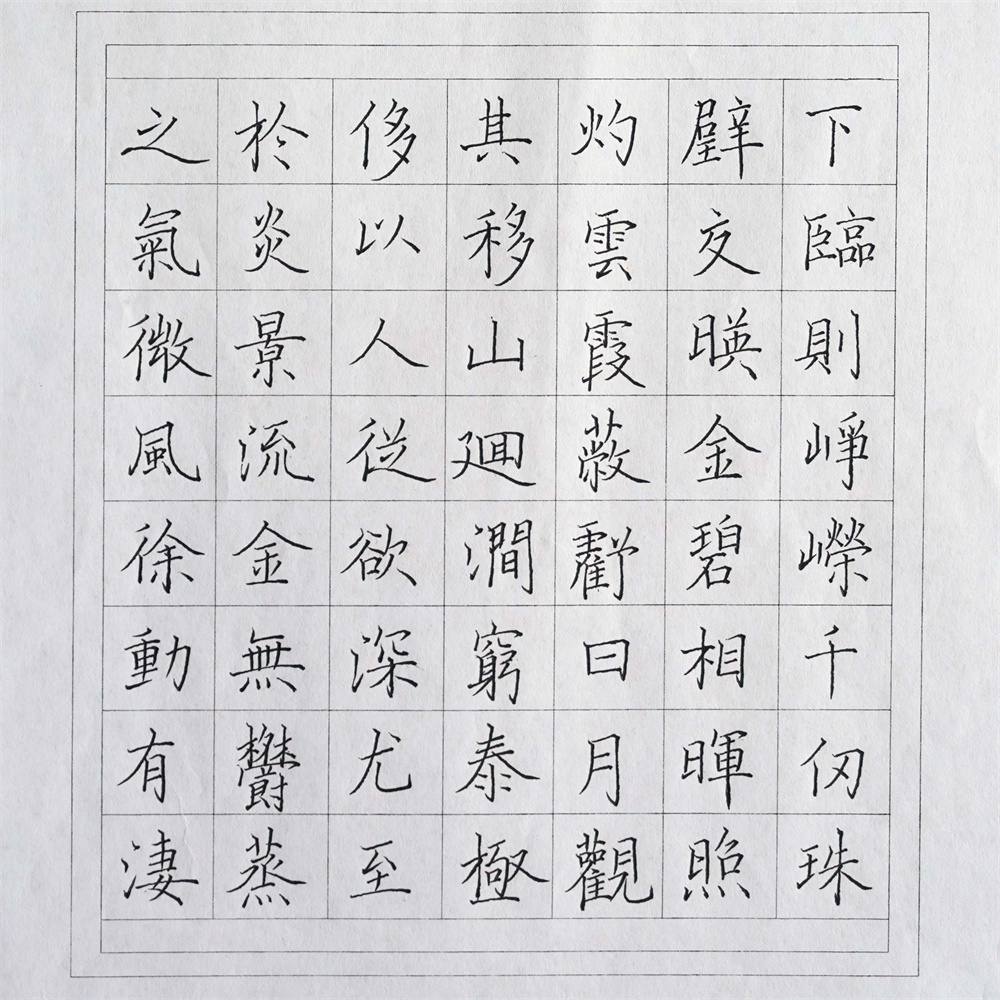 下臨則崢嶸千仞珠
璧交暎金碧相暉照
灼雲霞蔽虧日月觀
其移山廻澗窮泰極
侈以人從欲深尤至
於炎景流金無鬱蒸
之氣微風徐動有淒